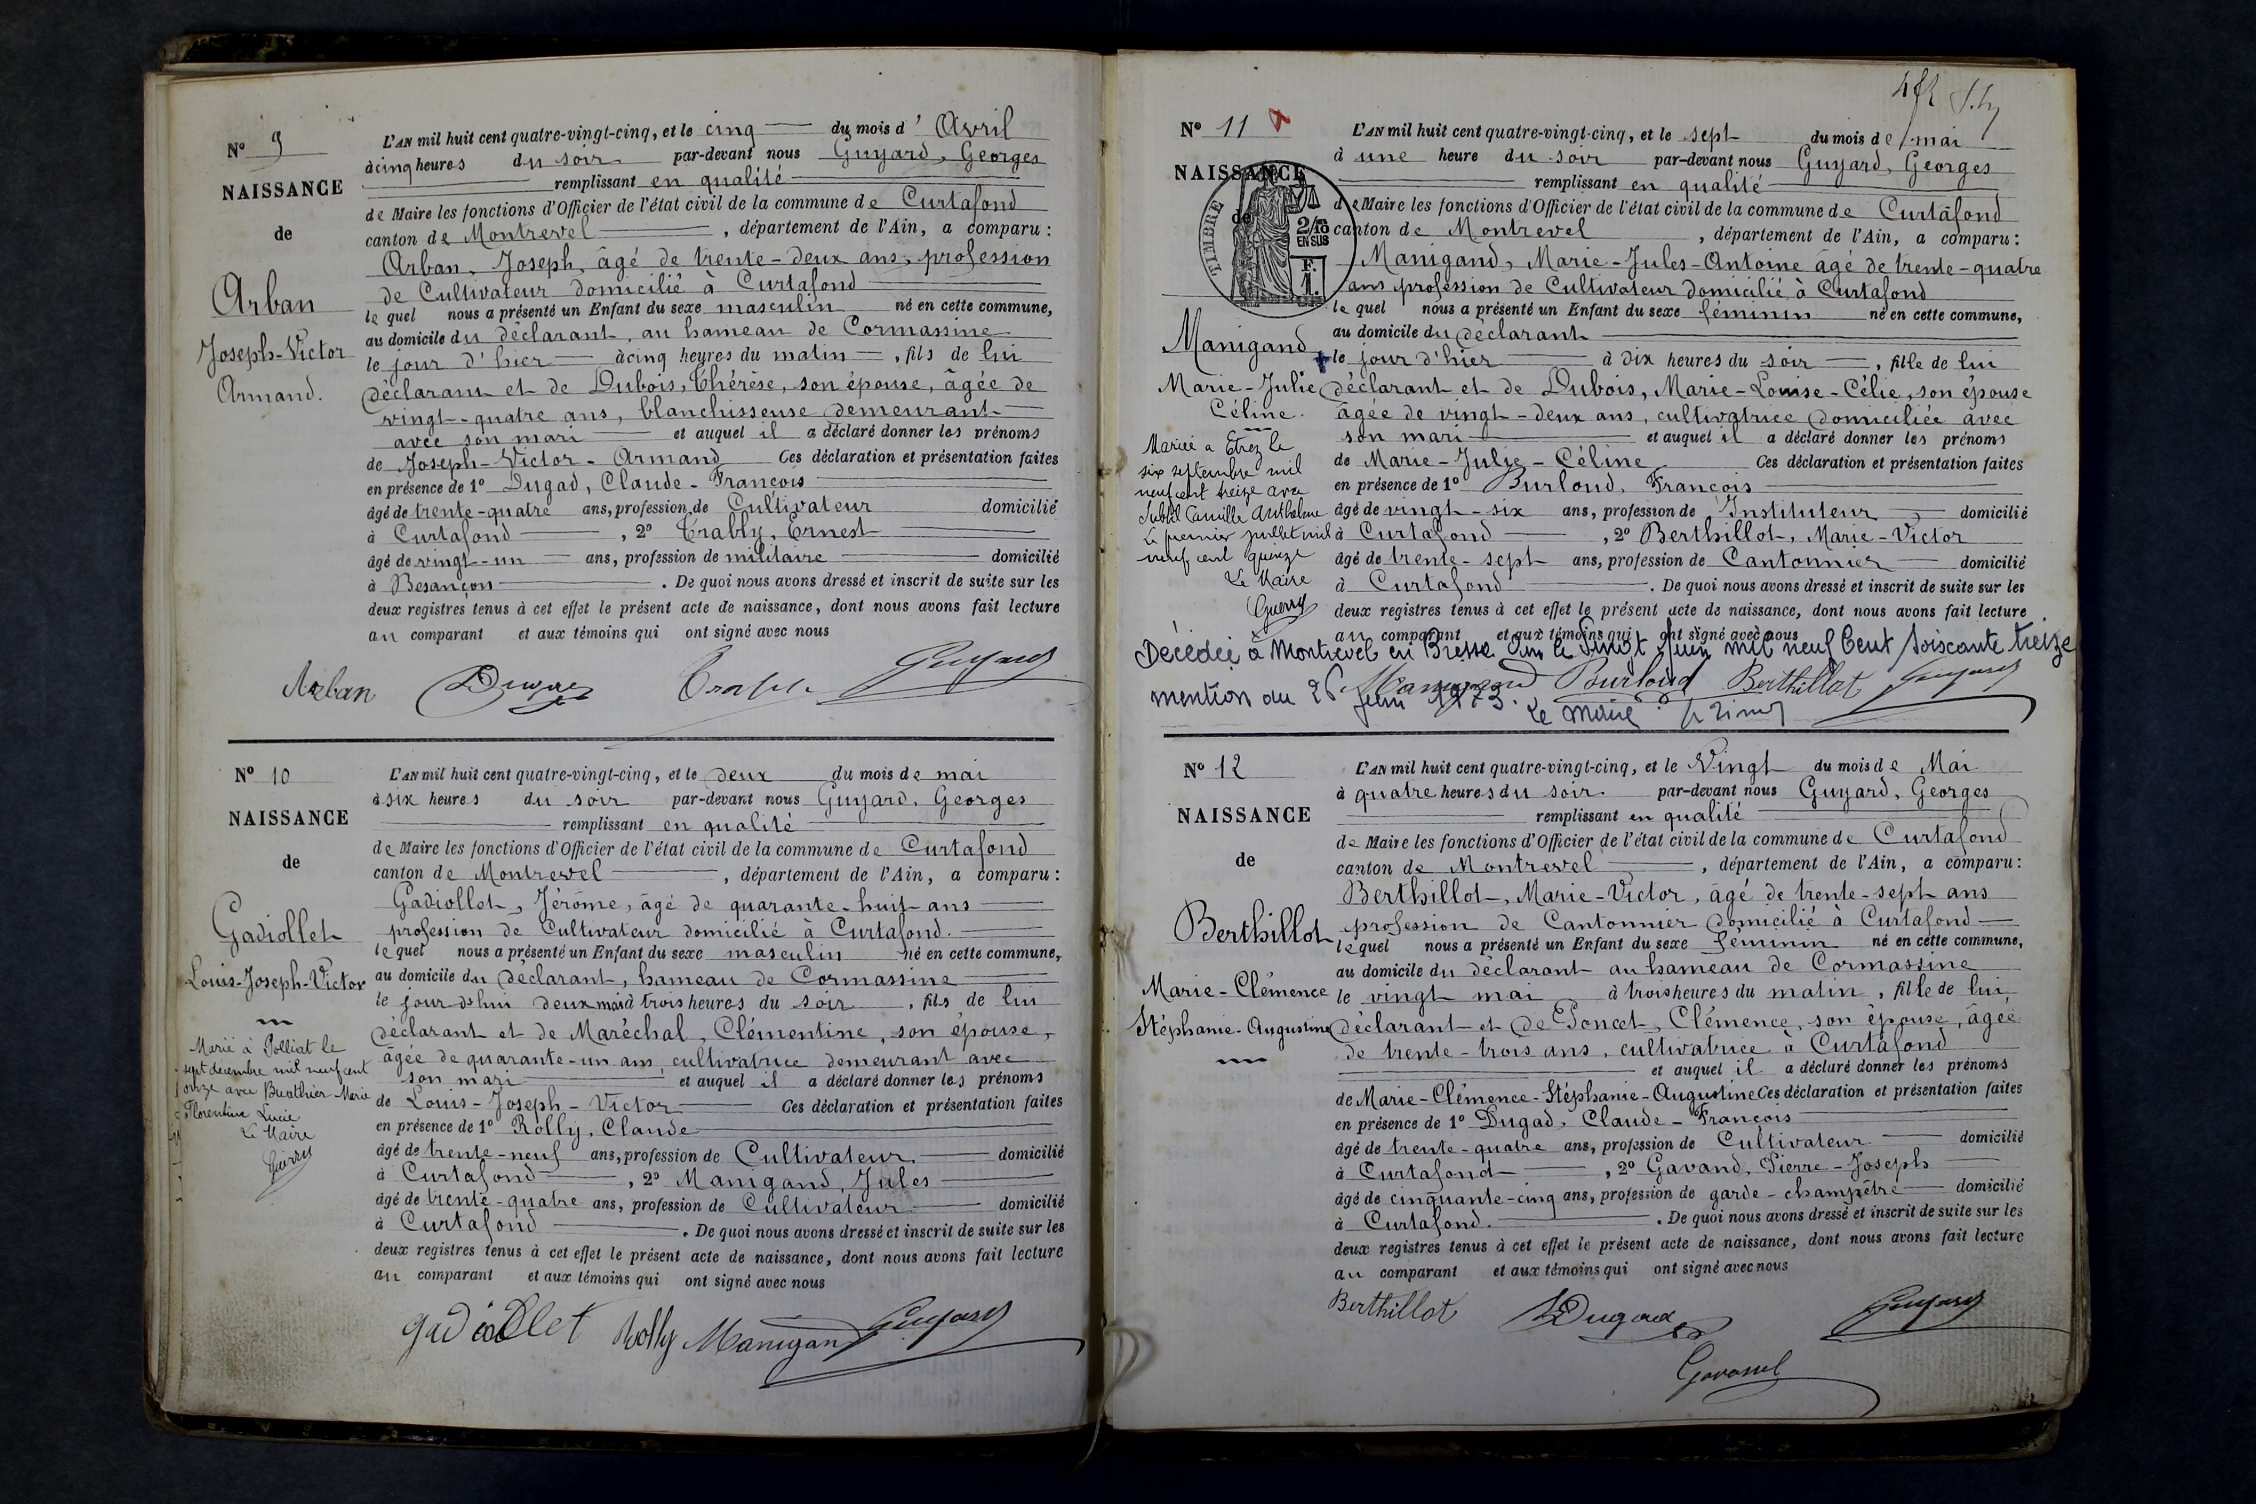 N° 9
NAISSANCE
de
Arban
Joseph-Victor
Armand.
L'AN mil huit cent quatre-vingt-cinq, et le cinq du mois d' Avril
à cinq heures du soir par-devant nous Guyard, Georges
remplissant en qualité
de Maire les fonctions d'Officier de l'état civil de la commune de Curtafond
canton de Montrevel, département de l'Ain, a comparu :
Arban, Joseph, âgé de trente-deux ans, profession
de Cultivateur domicilié à Curtafond
le quel nous a présenté un Enfant du sexe masculin né en cette commune,
au domicile du déclarant, au hameau de Cormassine
le jour d'hier à cinq heures du matin, fils de lui
déclarant et de Dubois, Thérèse, son épouse, âgée de
vingt-quatre ans, blanchisseuse demeurant
avec son mari et auquel il a déclaré donner les prénoms
de Joseph-Victor-Armand Ces déclaration et présentation faites
en présence de 1° Dugad, Claude-François
âgé de trente-quatre ans, profession de Cultivateur domicilié
à Curtafond, 2° Trably, Ernest
âgé de vingt-un ans, profession de militaire domicilié
à Besançon. De quoi nous avons dressé et inscrit de suite sur les
deux registres tenus à cet effet le présent acte de naissance, dont nous avons fait lecture
au comparant et aux témoins qui ont signé avec nous
Arban Guyard
N° 10
NAISSANCE
de
Gadiollet
Louis-Joseph-Victor
Marié à Polliat le
sept décembre mil neuf cent
onze avec Buathier Marie
Florentine Lucie
Le Maire
Guerry
L'AN mil huit cent quatre-vingt-cinq, et le deux du mois de mai
à six heures du soir par-devant nous Guyard, Georges
remplissant en qualité
de Maire les fonctions d'Officier de l'état civil de la commune de Curtafond
canton de Montrevel, département de l'Ain, a comparu :
Gadiollet, Jérôme, âgé de quarante-huit ans
profession de Cultivateur domicilié à Curtafond.
le quel nous a présenté un Enfant du sexe masculin né en cette commune,
au domicile du déclarant, hameau de Cormassine
le jour d'hui deux mai à trois heures du soir, fils de lui
déclarant et de Maréchal, Clémentine, son épouse,
âgée de quarante-un ans, cultivatrice demeurant avec
son mari et auquel il a déclaré donner les prénoms
de Louis-Joseph-Victor Ces déclaration et présentation faites
en présence de 1° Rolly, Claude
âgé de trente-neuf ans, profession de Cultivateur domicilié
à Curtafond, 2° Manigand, Jules
âgé de trente-quatre ans, profession de Cultivateur domicilié
à Curtafond. De quoi nous avons dressé et inscrit de suite sur les
deux registres tenus à cet effet le présent acte de naissance, dont nous avons fait lecture
au comparant et aux témoins qui ont signé avec nous
gadiollet Rolly Manigand Guyard
N° 11
NAISSANCE
de
TIMBRE
2/10
EN SUS
F.
1.
Manigand
Marie-Julie
Céline.
Mariée à Etrez le
six septembre mil
neuf cent treize avec
Subtil Camille Anthelme
Le premier juillet mil
neuf cent quinze
Le Maire
Guerry
L'AN mil huit cent quatre-vingt-cinq, et le sept du mois de mai
à une heure du soir par-devant nous Guyard, Georges
remplissant en qualité
de Maire les fonctions d'Officier de l'état civil de la commune de Curtafond
canton de Montrevel, département de l'Ain, a comparu :
Manigand, Marie-Jules-Antoine âgé de trente-quatre
ans profession de Cultivateur domicilié à Curtafond
le quel nous a présenté un Enfant du sexe féminin né en cette commune,
au domicile du déclarant
le jour d'hier à dix heures du soir, fille de lui
déclarant et de Dubois, Marie-Louise-Célie, son épouse
âgée de vingt-deux ans, cultivatrice domiciliée avec
son mari et auquel il a déclaré donner les prénoms
de Marie-Julie-Céline Ces déclaration et présentation faites
en présence de 1° Burloud, François
âgé de vingt-six ans, profession de Instituteur, domicilié
à Curtafond, 2° Berthillot, Marie-Victor
âgé de trente-sept ans, profession de Cantonnier domicilié
à Curtafond. De quoi nous avons dressé et inscrit de suite sur les
deux registres tenus à cet effet le présent acte de naissance, dont nous avons fait lecture
au comparant et aux témoins qui ont signé avec nous
Décédée à Montrevel en Bresse Ain le Vingt Juin mil neuf Cent soixante treize
mention du 26 juin 1973. Le Maire
Manigand Bourloud Berthillot Guyard
N° 12
NAISSANCE
de
Berthillot
Marie-Clémence
Stéphanie-Augustine
L'AN mil huit cent quatre-vingt-cinq, et le Vingt du mois de Mai
à quatre heures du soir. par-devant nous Guyard, Georges
remplissant en qualité
de Maire les fonctions d'Officier de l'état civil de la commune de Curtafond
canton de Montrevel, département de l'Ain, a comparu :
Berthillot, Marie-Victor, âgé de trente-sept ans
profession de Cantonnier domicilié à Curtafond
le quel nous a présenté un Enfant du sexe féminin né en cette commune,
au domicile du déclarant au hameau de Cormassine
le vingt mai à trois heures du matin, fille de lui
déclarant et de Poncet, Clémence, son épouse, âgée
de trente-trois ans, cultivatrice à Curtafond
et auquel il a déclaré donner les prénoms
de Marie-Clémence-Stéphanie-Augustine Ces déclaration et présentation faites
en présence de 1° Dugad, Claude-François
âgé de trente-quatre ans, profession de Cultivateur domicilié
à Curtafond, 2° Gavand, Pierre-Joseph
âgé de cinquante-cinq ans, profession de garde-champêtre domicilié
à Curtafond. De quoi nous avons dressé et inscrit de suite sur les
deux registres tenus à cet effet le présent acte de naissance, dont nous avons fait lecture
au comparant et aux témoins qui ont signé avec nous
Berthillot Dugad Guyard
Gavand